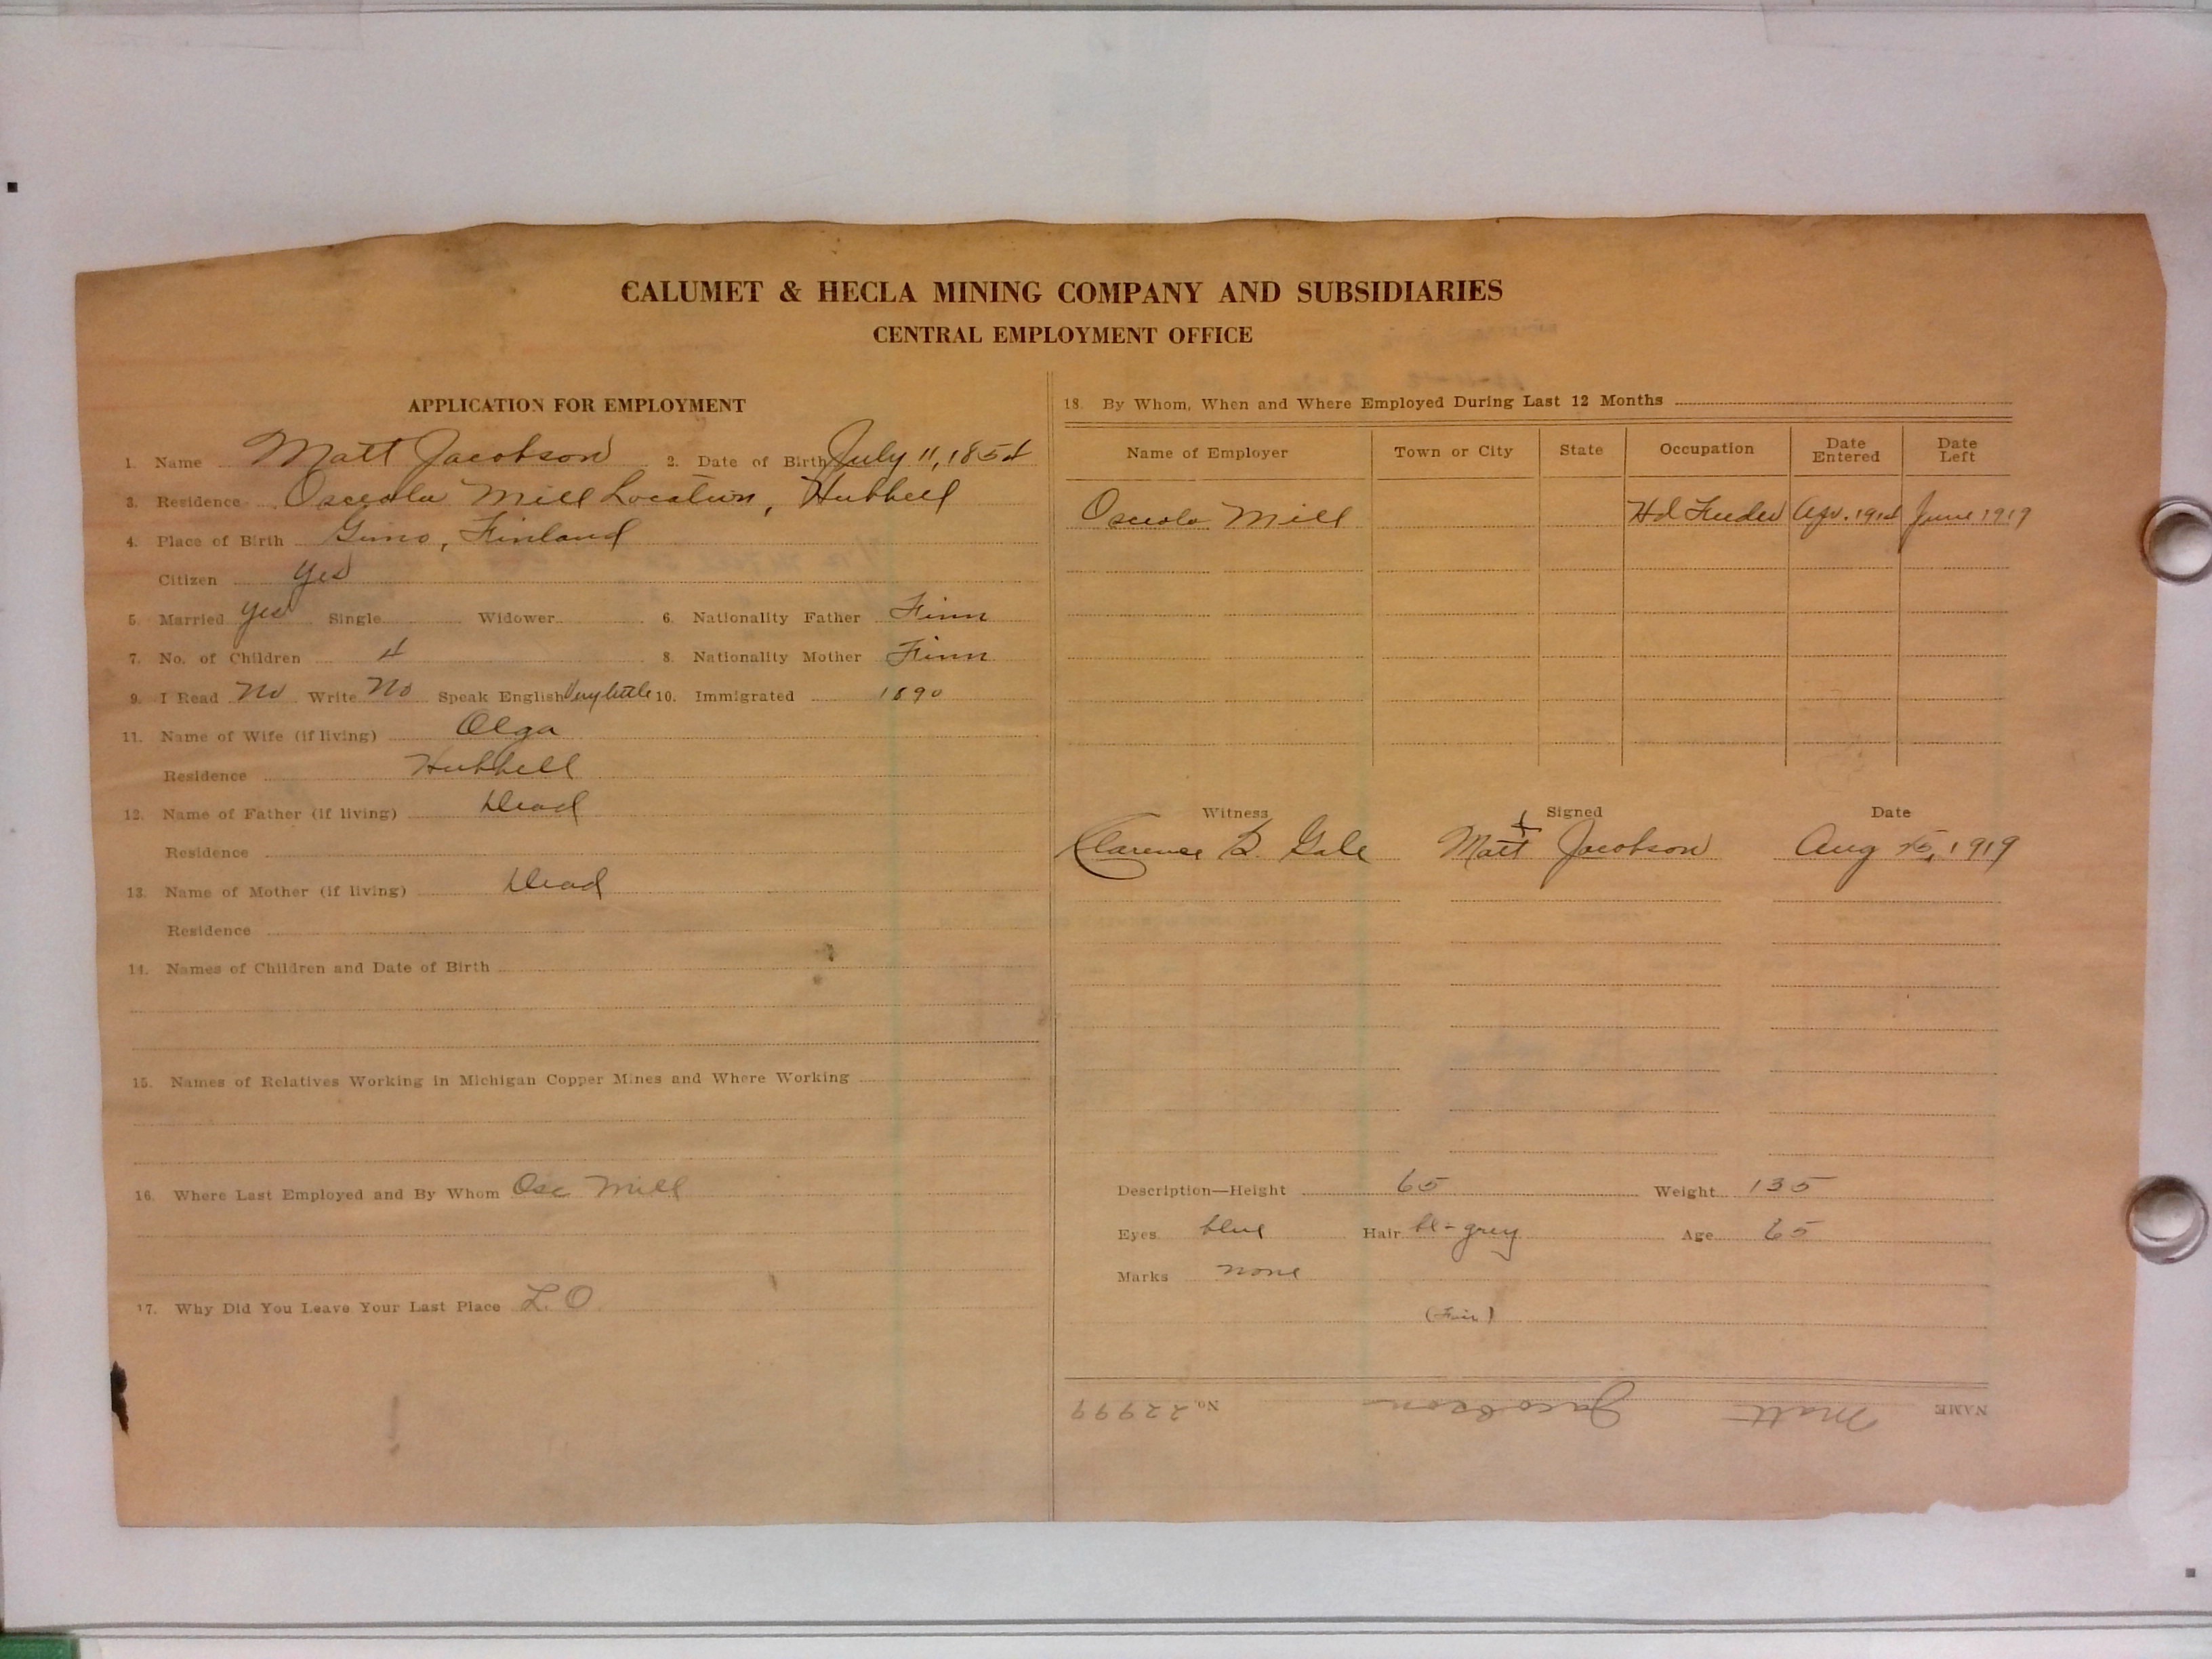 CALUMET & HECLA MINING COMPANY AND SUBSIDIARIES
CENTRAL EMPLOYMENT OFFICE
APPLICATION FOR EMPLOYMENT
1. Name Matt Jacobson 2. Date of Birth July 11, 1854
3. Residence Osceola Mill Location, Hubbell
4. Place of Birth Gimo, Finland
Citizen yes
5. Married yes Single Widower 6. Nationality Father Finn
7. No. of Children 4 8. Nationality Mother Finn
9. I Read No Write No Speak English Very little 10. Immigrated 1890
11. Name of Wife (if living) Olga
Residence Hubbell
12. Name of Father (if living) Dead
Residence
13. Name of Mother (if living) Dead
Residence
14. Names of Children and Date of Birth
15. Names of Relatives Working in Michigan Copper Mines and Where Working
16. Where Last Employed and By Whom Osc Mill
17. Why Did You Leave Your Last Place L.O
18. By Whom, When and Where Employed During Last 12 Months
Name of Employer Town or City State Occupation Date Entered Date Left
Osceola Mill Hd Feeder Apr. 1914 June 1919
Witness Signed Date
Clarence B. Gale Matt x Jacobson Aug 25, 1919
Description—Height 65 Weight 135
Eyes blue Hair bl-grey Age 65
Marks none
(Fair)
NAME Matt Jacobson No. 22999